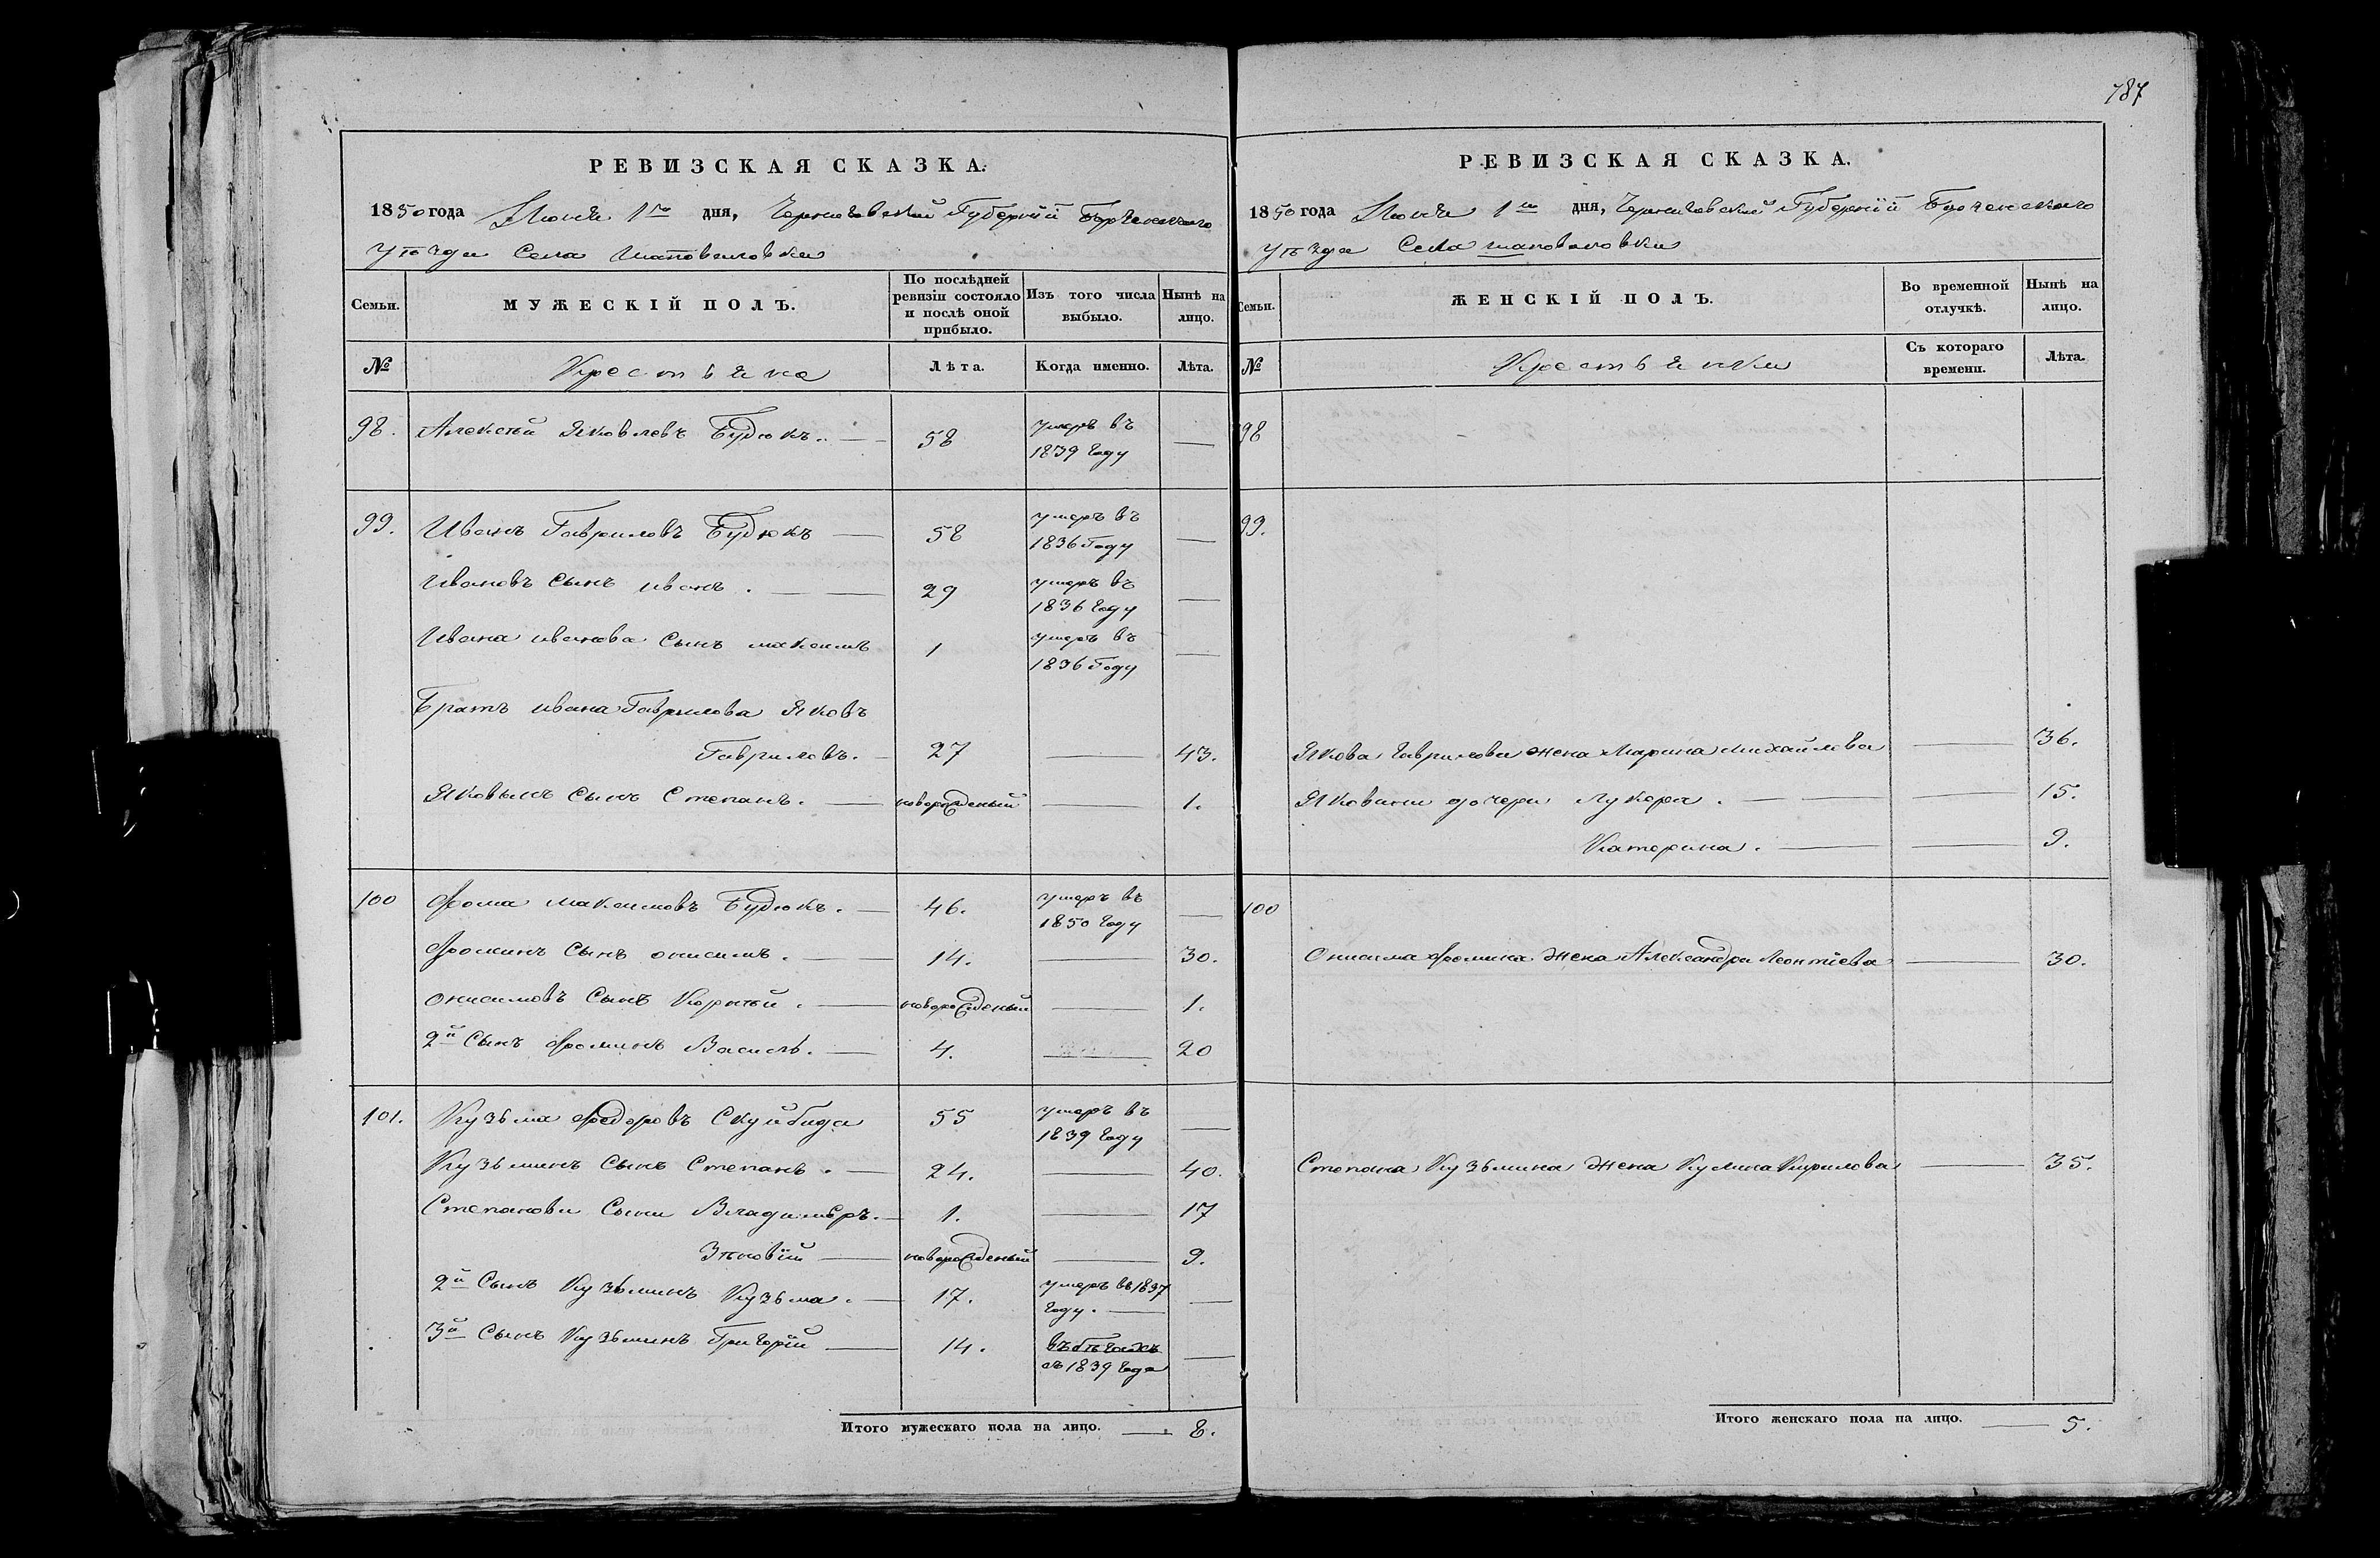 787
РЕВИЗСКАЯ СКАЗКА.
1850 года Июня 1го дня, Черниговской Губернїи Борзенскаго
уѣзда Села Шаповаловки
Семьи. МУЖЕСКІЙ ПОЛЪ. По послѣдней ревизіи состояло и послѣ оной прибыло. Изъ того числа выбыло. Нынѣ на лицо.
№ Крестьяне Лѣта. Когда именно. Лѣта.
98. Алексѣй Яковлевъ Будюкъ. — 58 умеръ въ 1839 году —
99. Иванъ Гавриловъ Будюкъ — 58 умеръ въ 1836 Году —
Ивановъ Сынъ иванъ. — 29 умеръ въ 1836 году —
Ивана иванова Сынъ максимъ 1 умеръ въ 1836 Году —
Братъ ивана Гаврилова Яковъ
Гавриловъ. — 27 — 43.
Яковывъ Сынъ Степанъ. — новорожденый — 1.
100 Фома максимовъ Будюкъ. — 46. умеръ въ 1850 году —
Фоминъ Сынъ онисимъ. — 14. — 30.
онисимовъ Сынъ Корнѣй. — новорожденый — 1.
2й Сынъ Фоминъ Василь. — 4. — 20
101. Кузьма Федоровъ Скуйбида 55 умеръ въ 1839 году —
Кузьминъ Сынъ Степанъ. — 24. — 40.
Степанови Сыни Владимѣръ. — 1. — 17
Зѣновїй — новорожденый — 9.
2й Сынъ Кузьминъ Кузьма. — 17. умеръ въ 1837 году. —
3й Сынъ Кузьминъ Григорїй — 14. въ бѣгахъ съ 1839 года —
Итого мужескаго пола на лицо. — 8.
РЕВИЗСКАЯ СКАЗКА.
1850 года Июня 1го дня, Черниговской Губернїи Борзенскаго
уѣзда Села шаповаловки
Семьи. ЖЕНСКІЙ ПОЛЪ. Во временной отлучкѣ. Нынѣ на лицо.
№ Крестьянки Съ котораго времени. Лѣта.
98
99.
Якова гаврилова жена Марина михайлова — 36.
Яковини дочери Лукера. — — 15.
Катерина. — — 9.
100
Онисима Фомина жена Александра Леонтїева — 30.
Степана Кузьмина жена Кулина Кирилова — 35.
Итого женскаго пола на лицо. — 5.